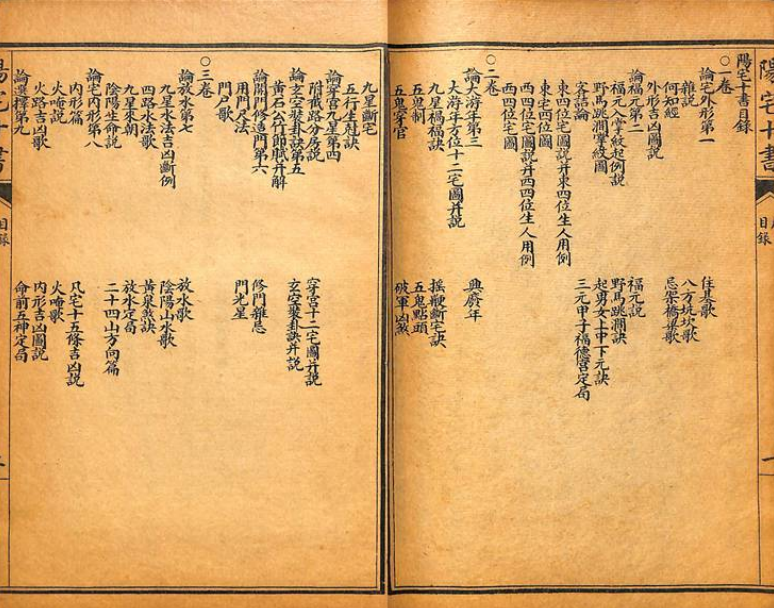 陽宅十書
目錄
陽宅十書目錄
○一卷
論宅外形第一
雜說
住基歌
何知經
八方坑坎歌
外形吉凶圖說
忌架橋梁歌
論福元第二
福元說
福元掌紋起例說
野馬跳澗訣
野馬跳澗掌紋圖
起男女上中下元訣
客詰論
三元甲子福德宮定局
東四位宅圖說并東四位生人用例
東宅四位圖
西四位宅圖說并西四位生人用例
西四位宅圖
○二卷
論大游年第三
興廢年
大游年方位十二宅圖并說
九星禍福訣
搖鞭斷宅訣
五鬼制
五鬼點頭
五鬼穿宮
破軍凶煞
九星斷宅
五行生剋訣
論穿宮九星第四
穿宮十二宅圖并說
附截路分房說
玄空裝卦訣并說
論玄空裝卦訣第五
黃石公竹節賦并解
論開門修造門第六
修門雜忌
用門尺法
門光星
門戶歌
○三卷
論放水第七
放水歌
九星水法吉凶斷例
陰陽山水歌
四路水法歌
黃泉煞訣
九星來朝
放水定局
陰陽生命說
二十四山方向篇
論宅內形第八
內形篇
凡宅十五條吉凶說
火庵說
火庵歌
火路吉凶歌
內形吉凶圖說
論選擇第九
命前五神定局
陽宅十書
目錄